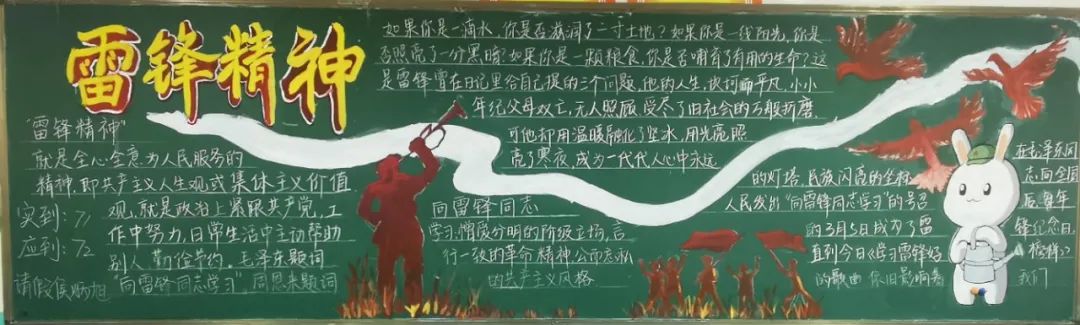 雷锋精神
"雷锋精神"
就是全心全意为人民服务的
精神,即共产主义人生观或集体主义价值
观,就是政治上紧跟共产党,工
作中努力,日常生活中主动帮助
别人,勤俭节约。毛泽东题词
"向雷锋同志学习",周恩来题词
实到:71
应到:72
请假
如果你是一滴水,你是否滋润了一寸土地?如果你是一线阳光,你是
否照亮了一分黑暗?如果你是一颗粮食,你是否哺育了有用的生命?这
是雷锋曾在日记里给自己提的三个问题,他的人生,坎坷而平凡,小小
年纪父母双亡,无人照顾,受尽了旧社会的万般折磨,
可他却用温暖融化了坚冰,用光亮照
亮了寒夜,成为一代代人心中永远
的灯塔,民族闪亮的坐标
向雷锋同志
学习憎爱分明的阶级立场,言
行一致的革命精神公而忘私
的共产主义风格
在毛泽东同
志,向全国
人民发出"向雷锋同志学习"的号召
后,每年
的3月5日成为了雷
锋纪念日,
直到今日《学习雷锋好
榜样》
的歌曲依旧影响着
我们